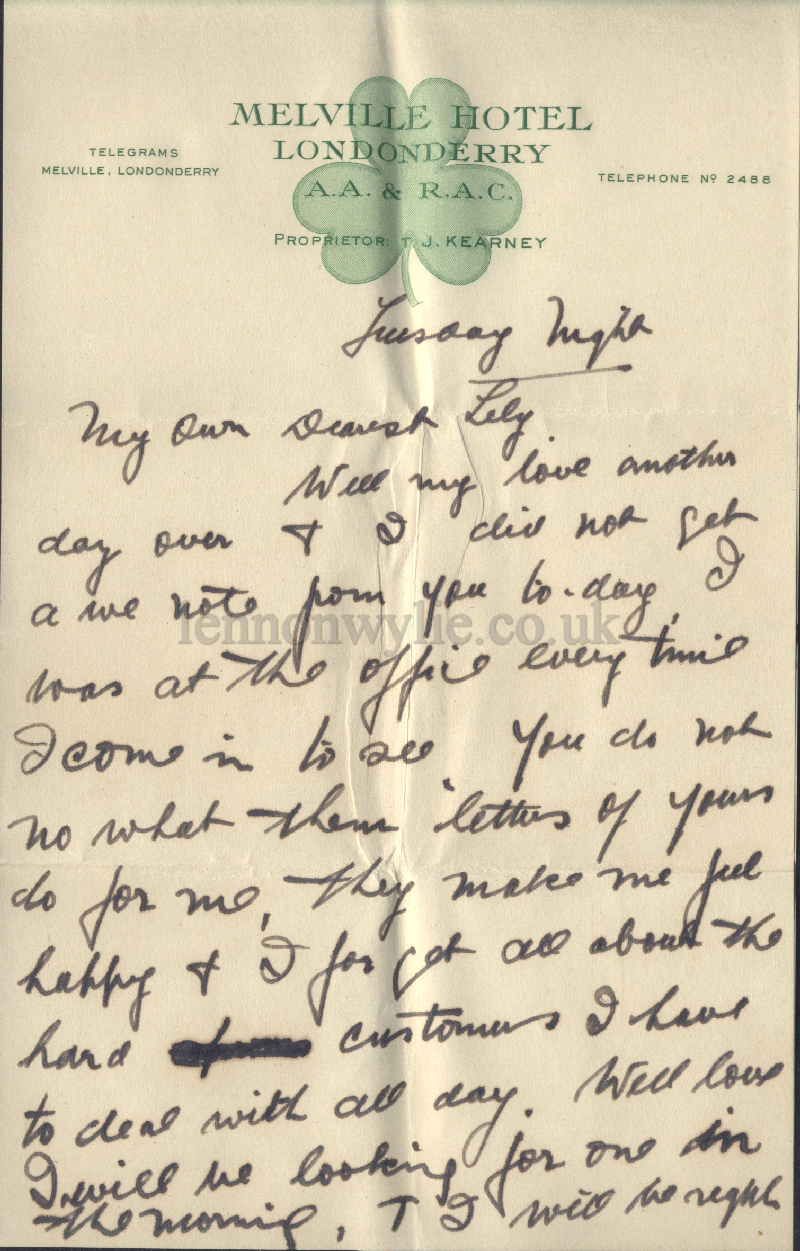 MELVILLE HOTEL
LONDONDERRY
TELEGRAMS
MELVILLE, LONDONDERRY
A.A. & R.A.C.
TELEPHONE Nº 2488
PROPRIETOR: T. J. KEARNEY
Tuesday Night
My Own Dearest Lily
Well my love another
day over & I did not get
a wee note from you to-day, I
was at the office every time
I come in to see You do not
no what them letters of yours
do for me, they make me feel
happy & I for get all about the
hard customers I have
to deal with all day. Well love
I will be looking for one in
the morning, & I will be right
lennonwylie.co.uk